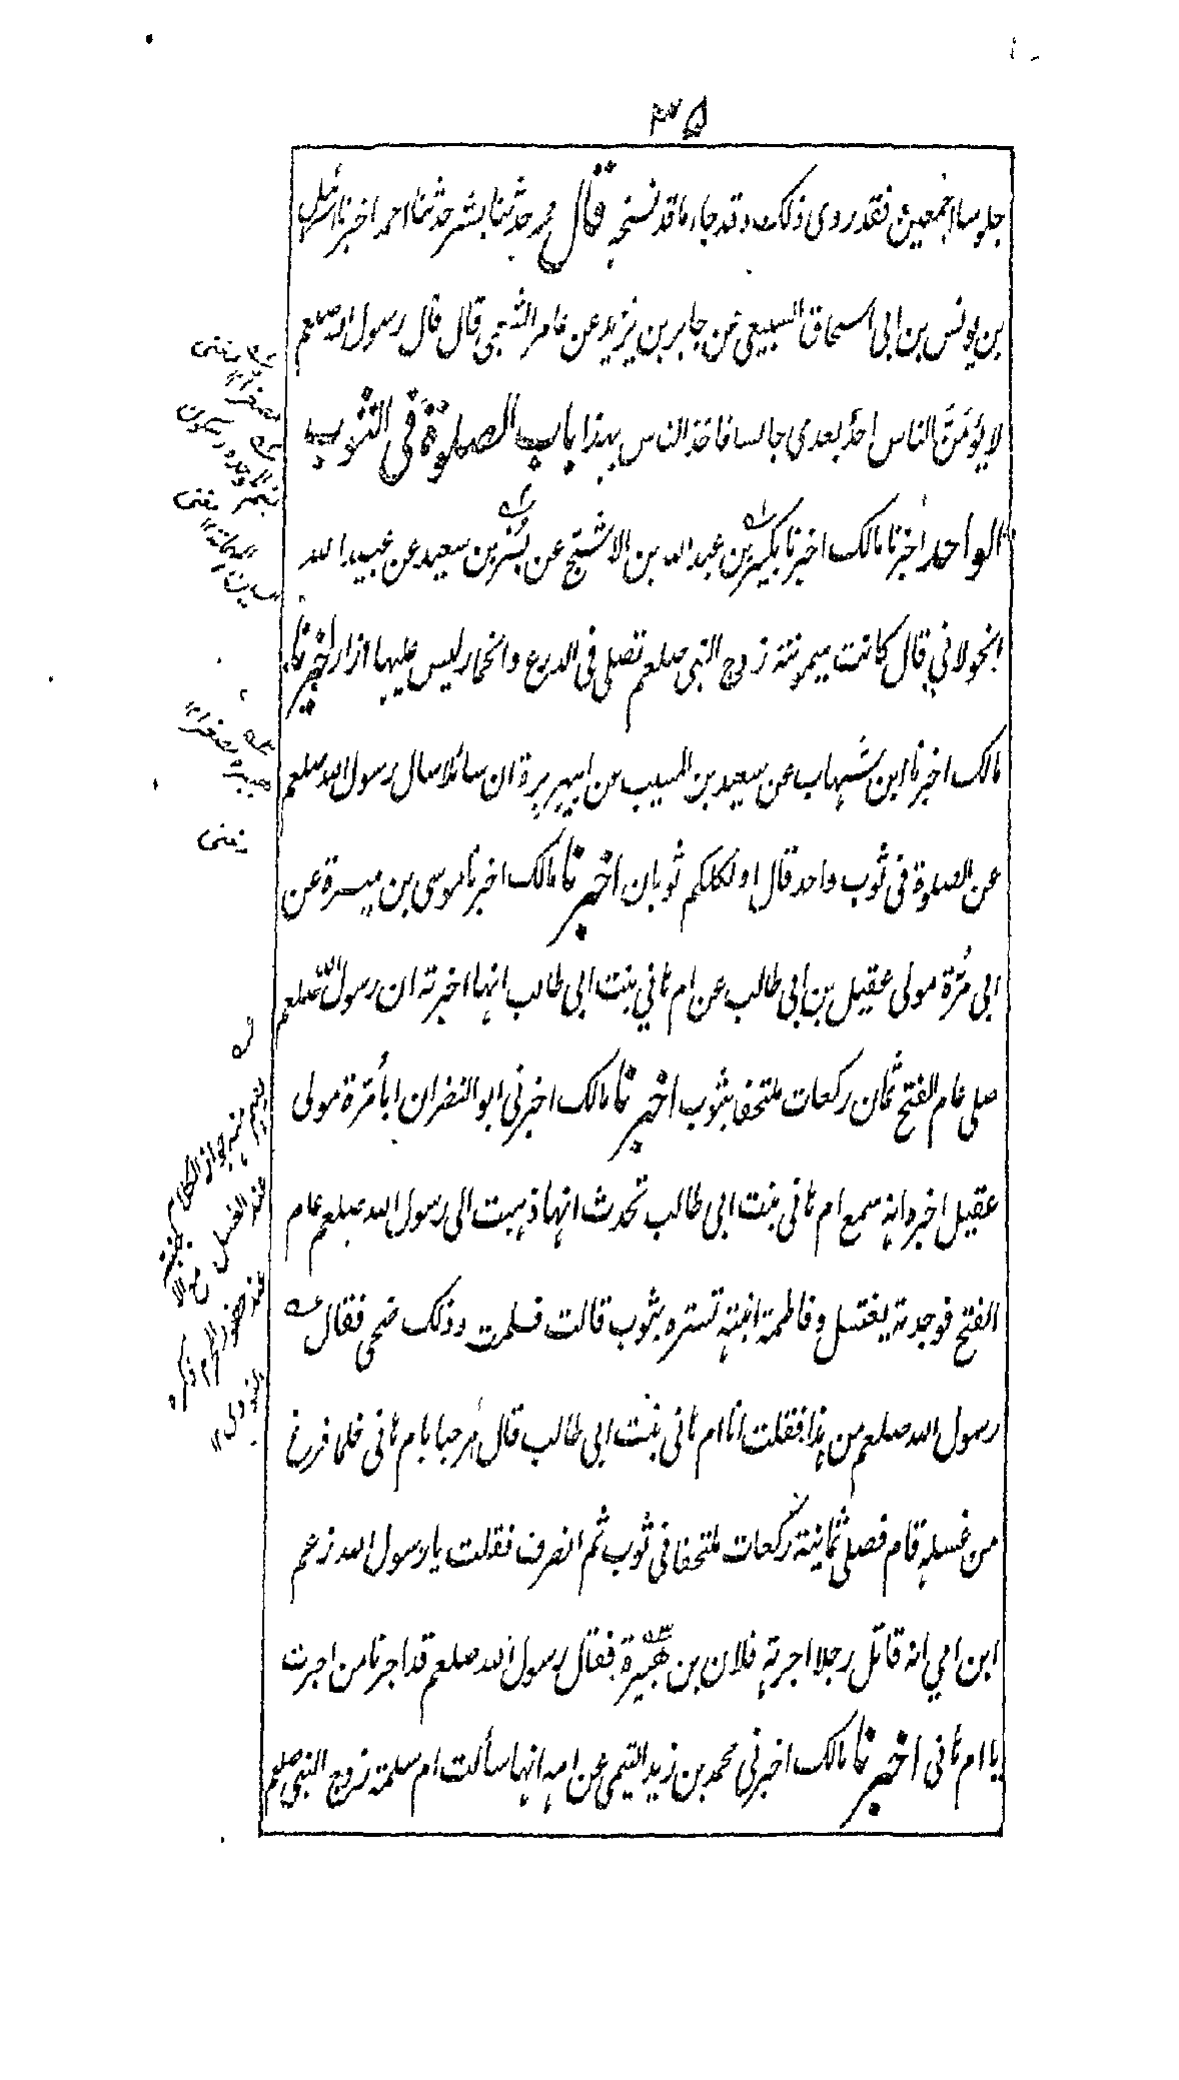 ٣٥
جلوسا اجمعين فقد روى ذلك وقد جاء ما قد نسخه قال محمد حدثنا بشر حدثنا احمد اخبرنا اسرائيل
بن يونس بن ابى اسحاق السبيعى عن جابر بن يزيد عن عامر الشعبى قال قال رسول الله صلعم
لا يؤمّنّ الناس احد بعدى جالسا فاخذ الناس بهذا باب الصلوة فى الثوب
الواحد اخبرنا مالك اخبرنا بكير بن عبد الله بن الاشج عن بسر بن سعيد عن عبيد الله
الخولاني قال كانت ميمونة زوج النبى صلعم تصلى فى الدرع والخمار ليس عليها ازار اخبرنا
مالك اخبرنا ابن شهاب عن سعيد بن المسيب عن ابيهريرة ان سائلا سال رسول الله صلعم
عن الصلوة فى ثوب واحد قال او لكلكم ثوبان اخبرنا مالك اخبرنا موسى بن ميسرة عن
ابى مُرّة مولى عقيل بن ابى طالب عن ام هاني بنت ابى طالب انها اخبرته ان رسول الله صلعم
صلى عام الفتح ثمان ركعات ملتحفا بثوب اخبرنا مالك اخبرنى ابو النضر ان ابا مُرّة مولى
عقيل اخبره انه سمع ام هانى بنت ابى طالب تحدث انها ذهبت الى رسول الله صلعم عام
الفتح فوجدته يغتسل وفاطمة ابنته تستره بثوب قالت فسلمت وذلك ضحى فقال
رسول الله صلعم من هذا فقلت انا ام هانى بنت ابى طالب قال مرحبا بام هانى فلما فرغ
من غسله قام فصلى ثمانية ركعات ملتحفا فى ثوب ثم انصرف فقلت يا رسول الله زعم
ابن امي انه قاتل رجلا اجرته فلان بن هبيرة فقال رسول الله صلعم قد اجرنا من اجرت
يا ام هانى اخبرنا مالك اخبرنى محمد بن زيد التيمى عن امه انها سألت ام سلمة زوج النبى صلعم
مصغرا ١٢
يعنى